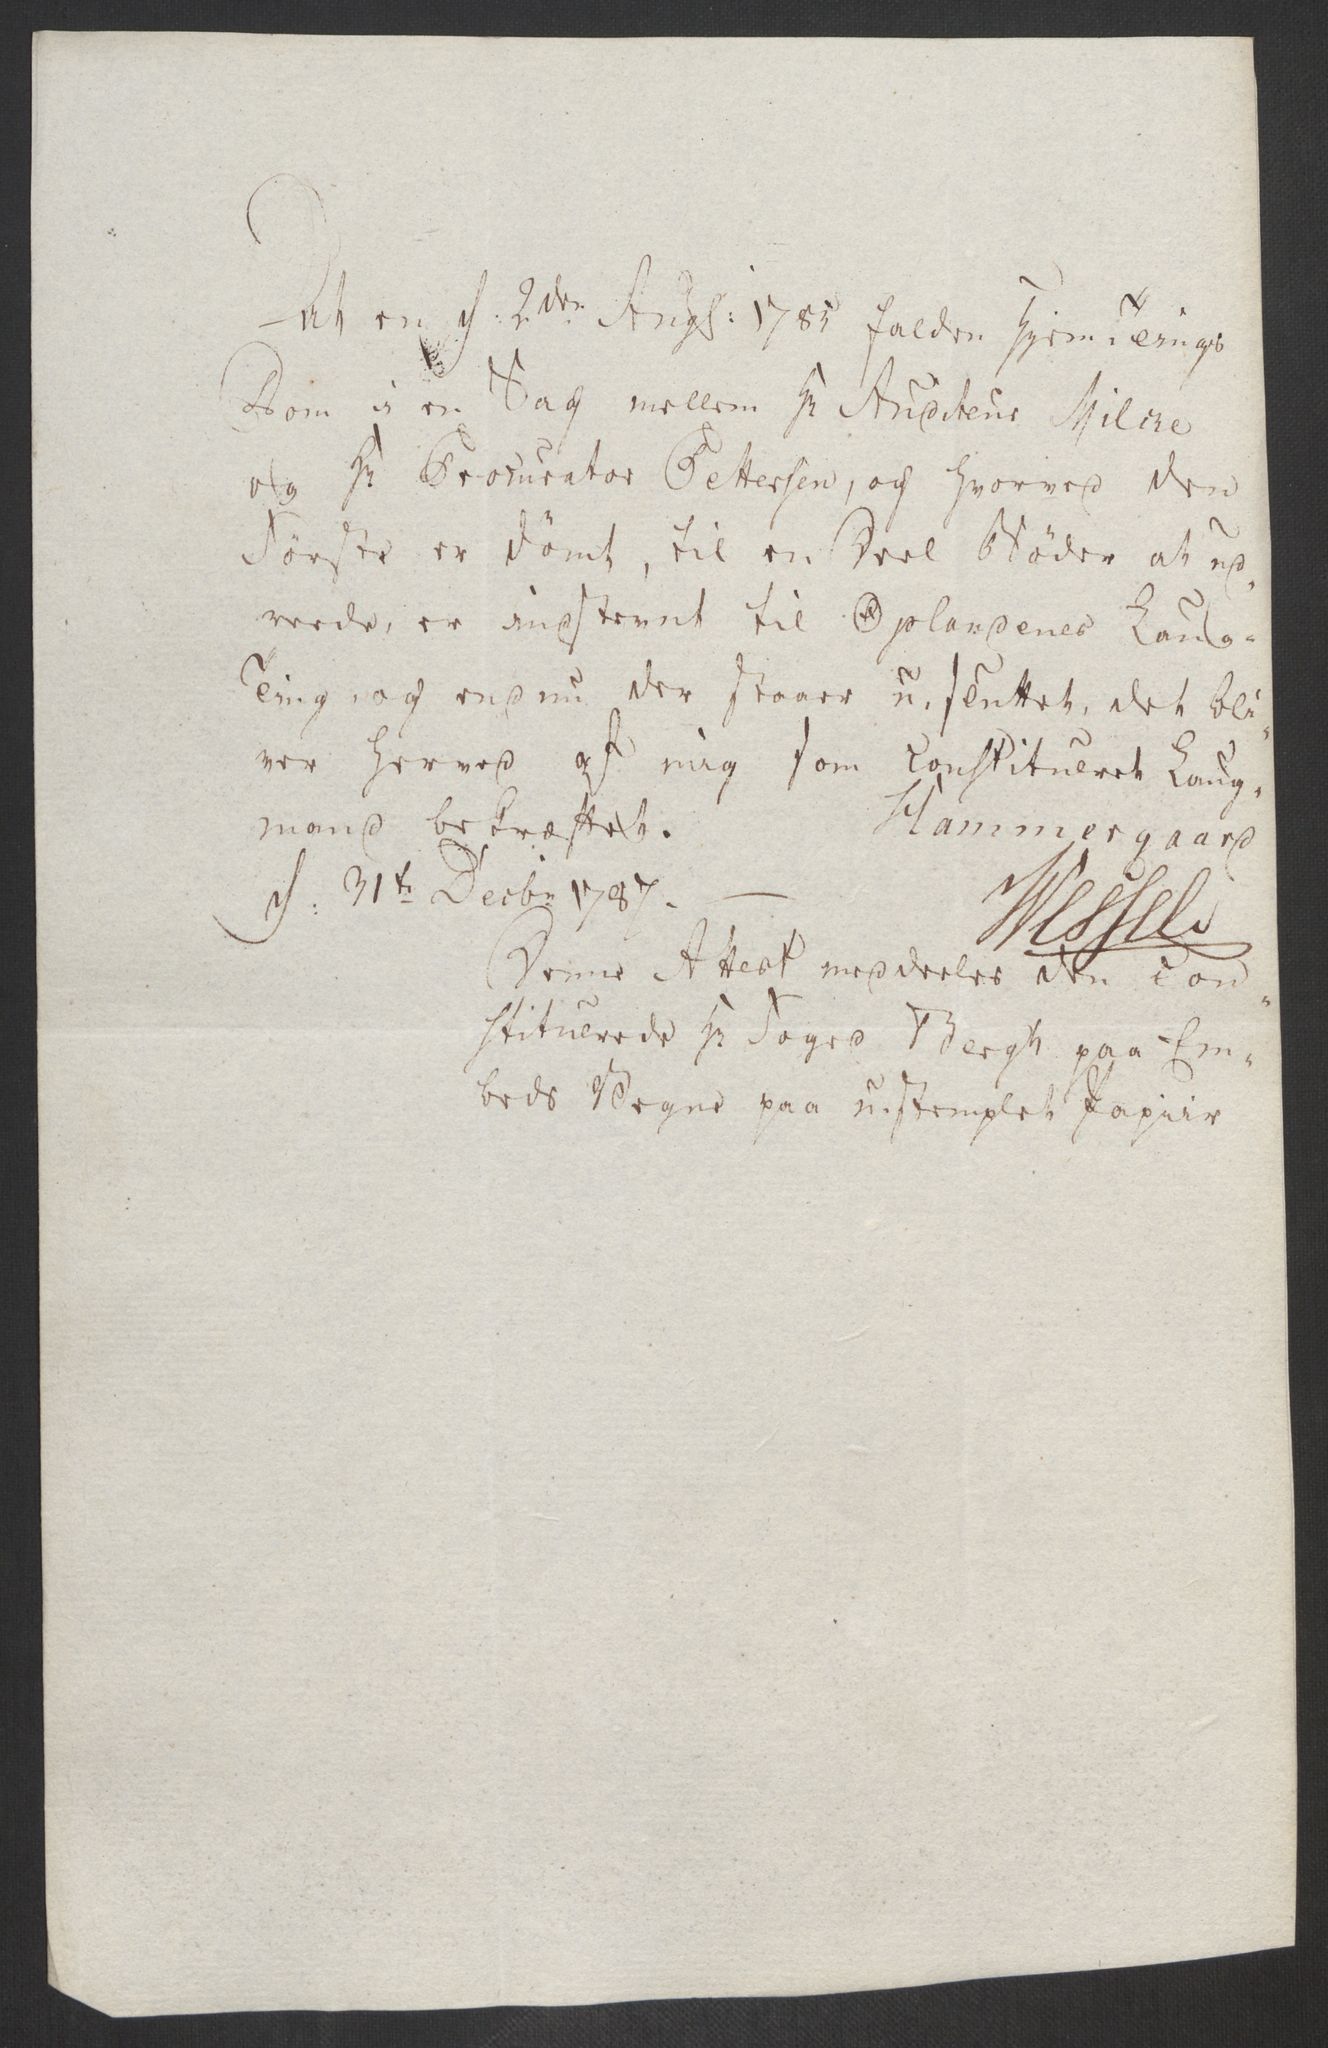 At en d: 2den Aug: 1785 falden Hjem-Tings
Dom i en Sag mellem Hr Auditeur Milche
og Hr Procurator Pettersen, og hvorved den
Første er dömt, til en Deel Böder at ud-
reede, er indstevnt til Oplandenes Laug-
Ting, og endnu der staaer u-sluttet, det bli-
ver herved af mig som constitueret Laug-
mand bekræftet. Hammergaard
d: 31te Decbr 1787. —
Wessel
Denne Attest meddeeles den con-
stituerede Hr Foged Bergh paa Em-
beds Vegne paa u-stemplet Papiir